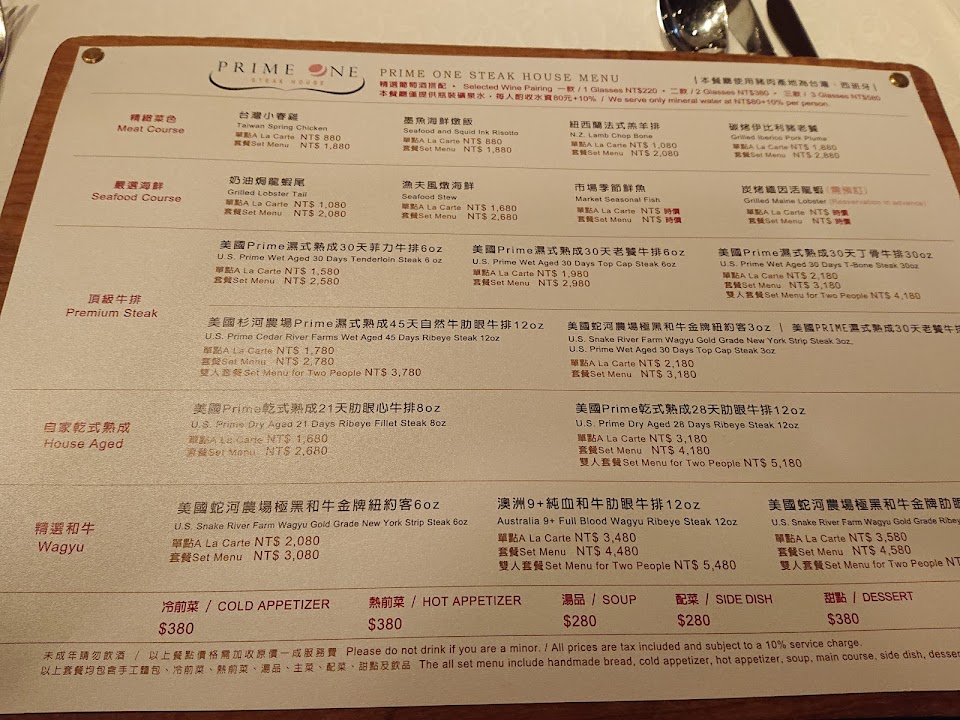 PRIME ONE
STEAK HOUSE
PRIME ONE STEAK HOUSE MENU
|本餐廳使用豬肉產地為台灣、西班牙|
精選葡萄酒搭配 • Selected Wine Pairing 一款 / 1 Glasses NT$220 • 二款 / 2 Glasses NT$380 • 三款 / 3 Glasses NT$580
本餐廳僅提供瓶裝礦泉水,每人酌收水資80元+10% / We serve only mineral water at NT$80+10% per person.
精緻菜色
Meat Course
台灣小春雞
Taiwan Spring Chicken
單點A La Carte NT$ 880
套餐Set Menu NT$ 1,880
墨魚海鮮燉飯
Seafood and Squid Ink Risotto
單點A La Carte NT$ 880
套餐Set Menu NT$ 1,880
紐西蘭法式羔羊排
N.Z. Lamb Chop Bone
單點A La Carte NT$ 1,080
套餐Set Menu NT$ 2,080
碳烤伊比利豬老饕
Grilled Iberico Pork Pluma
單點A La Carte NT$ 1,880
套餐Set Menu NT$ 2,880
嚴選海鮮
Seafood Course
奶油焗龍蝦尾
Grilled Lobster Tail
單點A La Carte NT$ 1,080
套餐Set Menu NT$ 2,080
漁夫風燉海鮮
Seafood Stew
單點A La Carte NT$ 1,680
套餐Set Menu NT$ 2,680
市場季節鮮魚
Market Seasonal Fish
單點A La Carte NT$ 時價
套餐Set Menu NT$ 時價
炭烤緬因活龍蝦(需預訂)
Grilled Maine Lobster (Reservation in advance)
單點A La Carte NT$ 時價
套餐Set Menu NT$ 時價
頂級牛排
Premium Steak
美國Prime濕式熟成30天菲力牛排6oz
U.S. Prime Wet Aged 30 Days Tenderloin Steak 6 oz
單點A La Carte NT$ 1,580
套餐Set Menu NT$ 2,580
美國Prime濕式熟成30天老饕牛排6oz
U.S. Prime Wet Aged 30 Days Top Cap Steak 6oz
單點A La Carte NT$ 1,980
套餐Set Menu NT$ 2,980
美國Prime濕式熟成30天丁骨牛排30oz
U.S. Prime Wet Aged 30 Days T-Bone Steak 30oz
單點A La Carte NT$ 2,180
套餐Set Menu NT$ 3,180
雙人套餐Set Menu for Two People NT$ 4,180
美國杉河農場Prime濕式熟成45天自然牛肋眼牛排12oz
U.S. Prime Cedar River Farms Wet Aged 45 Days Ribeye Steak 12oz
單點A La Carte NT$ 1,780
套餐Set Menu NT$ 2,780
雙人套餐Set Menu for Two People NT$ 3,780
美國蛇河農場極黑和牛金牌紐約客3oz | 美國PRIME濕式熟成30天老饕牛排
U.S. Snake River Farm Wagyu Gold Grade New York Strip Steak 3oz,
U.S. Prime Wet Aged 30 Days Top Cap Steak 3oz
單點A La Carte NT$ 2,180
套餐Set Menu NT$ 3,180
自家乾式熟成
House Aged
美國Prime乾式熟成21天肋眼心牛排8oz
U.S. Prime Dry Aged 21 Days Ribeye Fillet Steak 8oz
單點A La Carte NT$ 1,680
套餐Set Manu NT$ 2,680
美國Prime乾式熟成28天肋眼牛排12oz
U.S. Prime Dry Aged 28 Days Ribeye Steak 12oz
單點A La Carte NT$ 3,180
套餐Set Menu NT$ 4,180
雙人套餐Set Menu for Two People NT$ 5,180
精選和牛
Wagyu
美國蛇河農場極黑和牛金牌紐約客6oz
U.S. Snake River Farm Wagyu Gold Grade New York Strip Steak 6oz
單點A La Carte NT$ 2,080
套餐Set Menu NT$ 3,080
澳洲9+純血和牛肋眼牛排12oz
Australia 9+ Full Blood Wagyu Ribeye Steak 12oz
單點A La Carte NT$ 3,480
套餐Set Menu NT$ 4,480
雙人套餐Set Menu for Two People NT$ 5,480
美國蛇河農場極黑和牛金牌肋眼
U.S. Snake River Farm Wagyu Gold Grade Ribeye
單點A La Carte NT$ 3,580
套餐Set Menu NT$ 4,580
雙人套餐Set Menu for Two People NT
冷前菜 / COLD APPETIZER
$380
熱前菜 / HOT APPETIZER
$380
湯品 / SOUP
$280
配菜 / SIDE DISH
$280
甜點 / DESSERT
$380
未成年請勿飲酒 / 以上餐點價格需加收原價一成服務費 Please do not drink if you are a minor. / All prices are tax included and subject to a 10% service charge.
以上套餐均包含手工麵包、冷前菜、熱前菜、湯品、主菜、配菜、甜點及飲品 The all set menu include handmade bread, cold appetizer, hot appetizer, soup, main course, side dish, desser